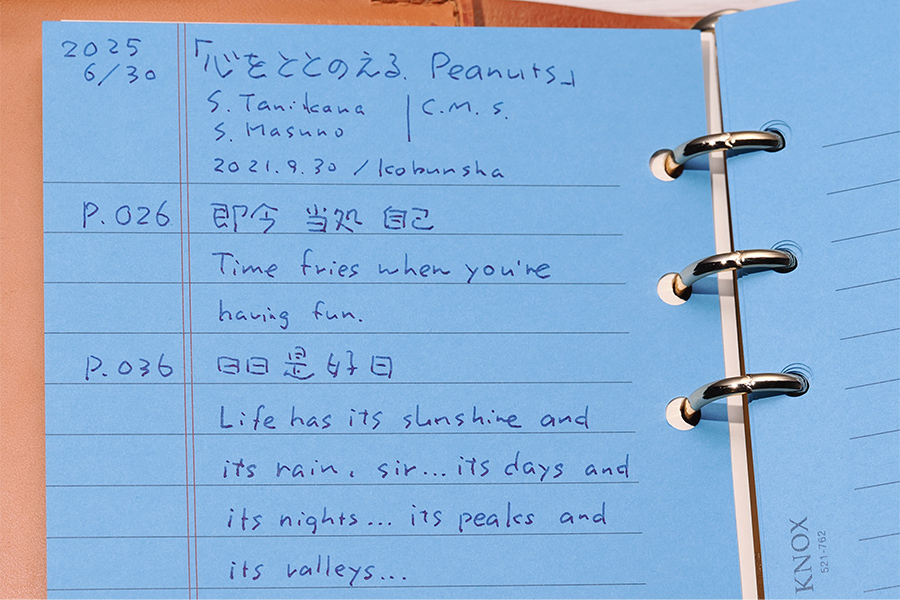 2025
6/30
「心をととのえる Peanuts」
S. Tanikawa | C.M. S.
S. Masuno
2021.9.30 / Kobunsha
P.026 即今 当処 自己
Time fries when you're
having fun.
P.036 日日是好日
Life has its sunshine and
its rain, sir... its days and
its nights... its peaks and
its valleys...
KNOX
521-762